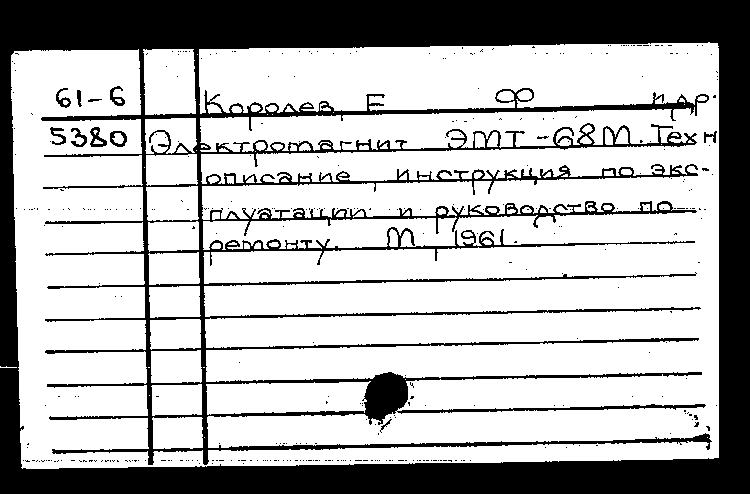 61-6 Королев, Е Ф и др.
5380 Электромагнит ЭМТ-68М. Техн
описание, инструкция по экс-
плуатации и руководство по
ремонту. М, 1961.